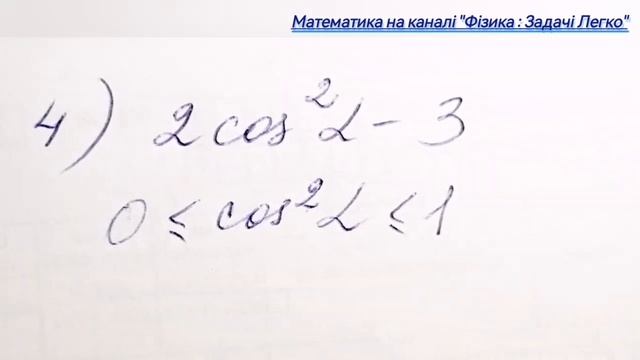 Математика на каналі "Фізика : Задачі Легко"
4) 2 cos²α - 3
0 ≤ cos²α ≤ 1